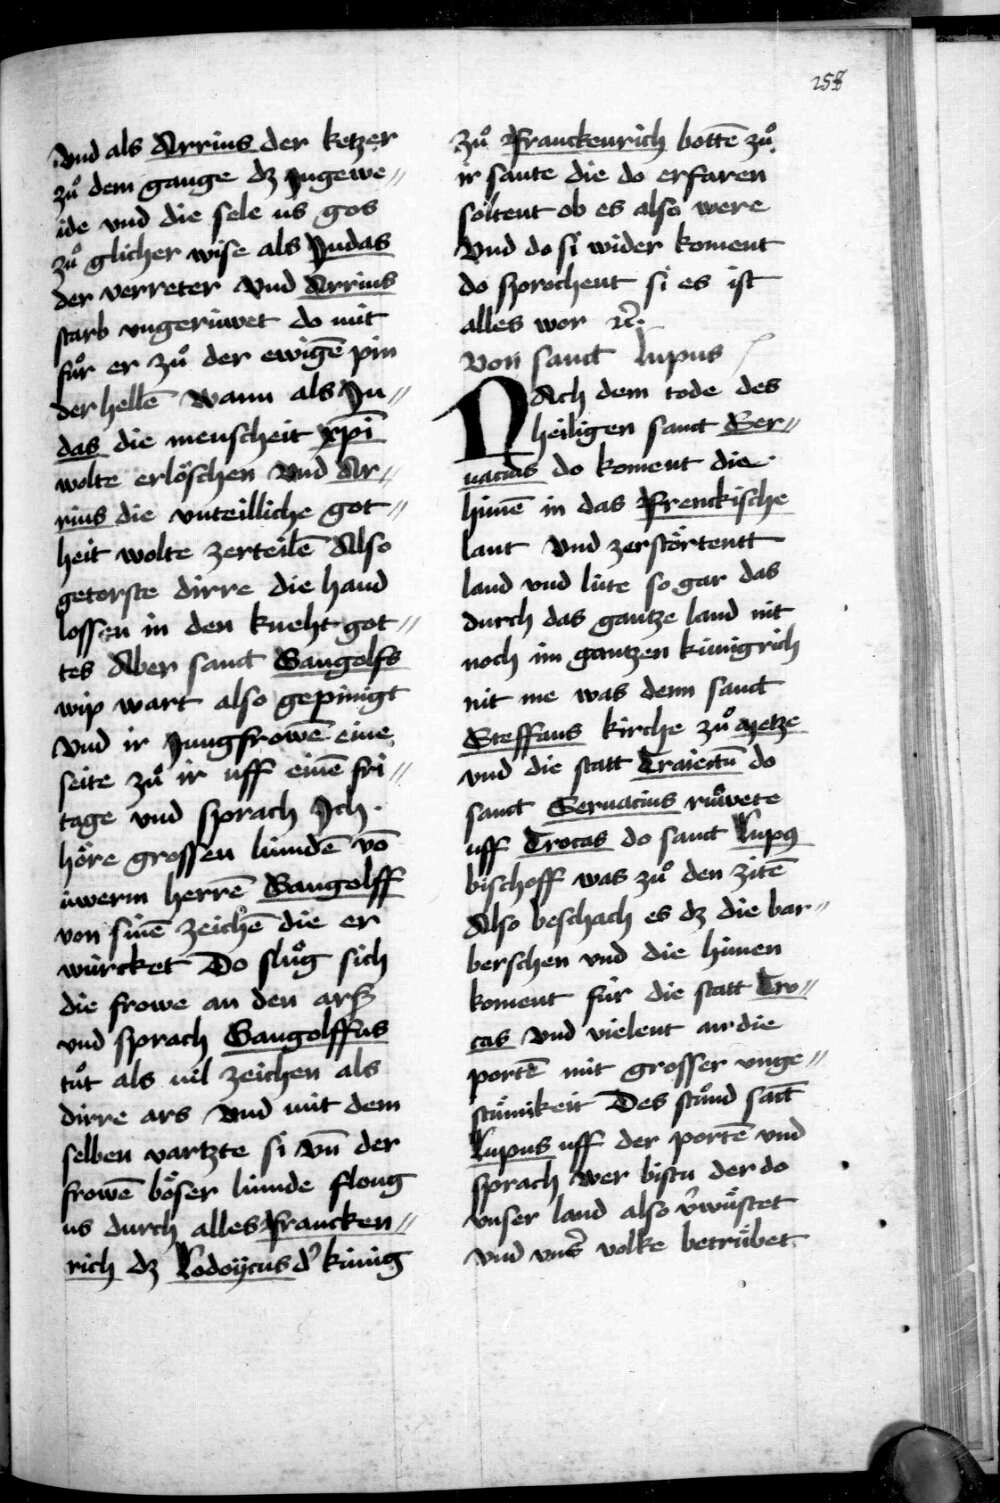 258
vnd als Arrius der ketzer
zuͦ dem gange dz Ingewe〃
ide vnd die sele us gos
zuͦ glicher wise als Judas
der verreter Vnd Arrius
starb vngeruwet do mit
fuͦr er zuͦ der ewigē pin
der hellē Wann als Ju〃
das die menscheit xp̄i
wolte erlöschen Vnd Ar〃
rius die vnteilliche got〃
heit wolte zerteilē Also
getorste dirre die hand
lossen in den kneht got〃
tes Aber sanct Gangolfs
wip wart also gepinigt
Vnd ir Jungfrowē eine
seite zuͦ ir uff einē fri〃
tage vnd sprach Ich
höre grossen lúmdē vō
úwerm herrē Gangolff
von sinē zeichē die er
würcket Do sluͦg sich
die frowe an den arß
vnd sprach Gangolffus
tuͦt als uil zeichen als
dirre ars Vnd mit dem
selben vartzte si Vn̄ der
frowē böser lúmde floug
us durch alles francken〃
rich dz Lodoÿcus dʼ kúnig
zuͦ franckenrich bottē zuͦ
ir sante die do erfaren
söltent ob es also were
Vnd do si wider koment
do sprochent si es ist
alles wor ꝛc̄.
Von sanct Lupus
NAch dem tode des
heiligen sanct Ser〃
uacius do koment die
húnē in das frenckische
lant Vnd zerstörtentt
land vnd lúte so gar das
durch das gantze land nit
noch im gantzen kúnigrich
nit me was denn sanct
Steffans kirche zuͦ Metze
vnd die statt Traiectū do
sanct Seruacius ruͦwete
uff Trocas do sanct Lupꝰ
bischoff was zuͦ den zitē
Also beschach es dz die bar〃
berschen vnd die húnen
koment für die statt Tro〃
cas Vnd vielent an die
portē mit grosser vnge〃
stümikeit Des stuͦnd sāct
Lupus uff der portē vnd
sprach wer bistu der do
vnser land also v̓wüstet
vnd vns̓ volke betrübet